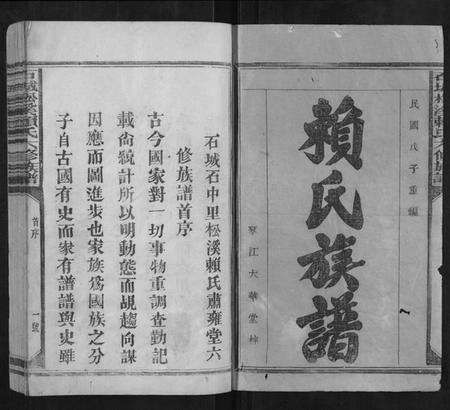 民國戊子重編
賴氏族譜
琴江大華堂梓
石城石中里松溪賴氏肅雍堂六
修族譜首序
古今國家對一切事物重調查勤記
載尚統計所以明動態而覘趨向謀
因應而圖進步也家族為國族之分
子自古國有史而家有譜譜與史雖
首序
一號